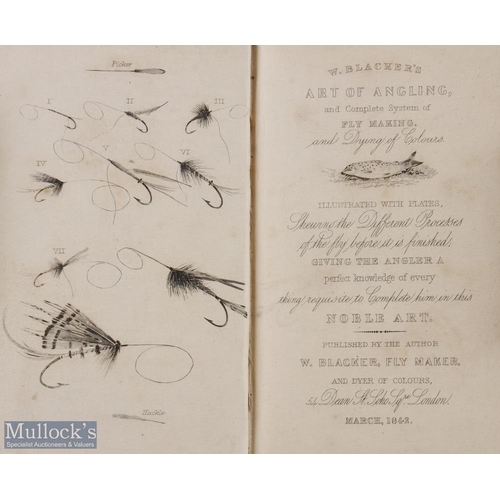 Picker
I
II
III
IV
V
VI
VII
Hackle
W. BLACKER'S
ART OF ANGLING,
and Complete System of
FLY MAKING.
and Dying of Colours.
ILLUSTRATED WITH PLATES,
Shewing the Different Processes
of the fly before it is finished;
GIVING THE ANGLER A
perfect knowledge of every
thing requisite to Complete him in this
NOBLE ART.
PUBLISHED BY THE AUTHOR
W. BLACKER, FLY MAKER,
AND DYER OF COLOURS,
54 Dean St. Soho Sqre. London
MARCH, 1842.
Mullock's
Specialist Auctioneers & Valuers